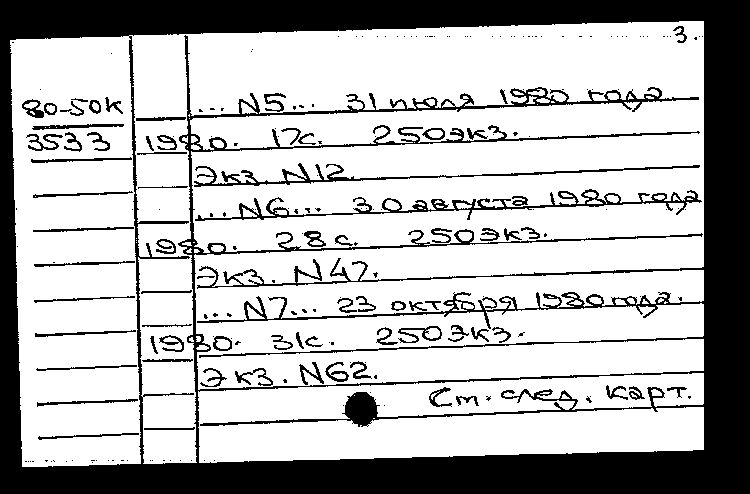 3.
80-50К ... N5... 31 июля 1980 года
3533 1980. 17с. 250экз.
Экз. N12.
... N6... 30 августа 1980 года
1980. 28с. 250экз.
Экз. N47.
... N7... 23 октября 1980 года.
1980. 31с. 250экз.
Экз. N62.
См. след. карт.